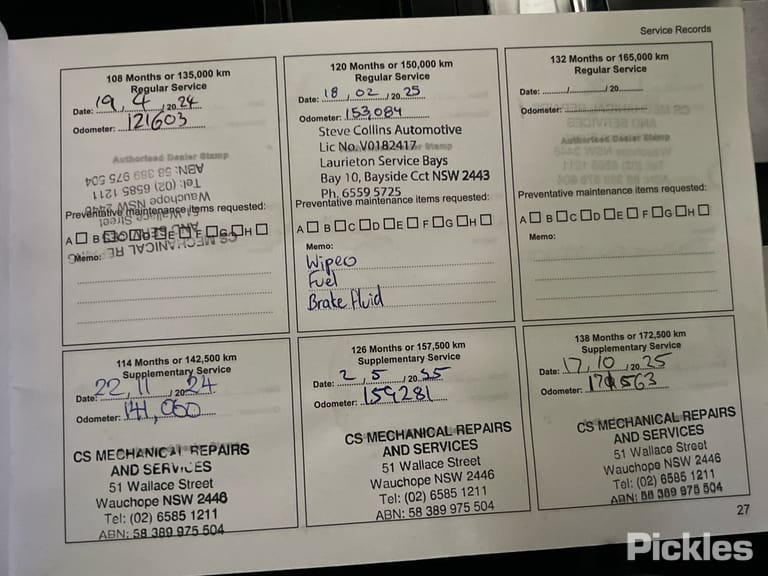 Service Records
108 Months or 135,000 km
Regular Service
Date: 19 / 4 / 20 24
Odometer: 121603
Authorised Dealer Stamp
ABN: 58 389 975 504
Tel: (02) 6585 1211
Wauchope NSW 2446
Wallace Street
AND SERVICES
CS MECHANICAL REPAIRS
Preventative maintenance items requested:
A B C D E F G H
Memo:
120 Months or 150,000 km
Regular Service
Date: 18 / 02 / 20 25
Odometer: 153,084
Steve Collins Automotive
Lic No. V0182417
Laurieton Service Bays
Bay 10, Bayside Cct NSW 2443
Ph. 6559 5725
Preventative maintenance items requested:
A B C D E F G H
Memo:
Fuel
Brake fluid
132 Months or 165,000 km
Regular Service
Date: / / 20
Odometer:
Authorised Dealer Stamp
Preventative maintenance items requested:
A B C D E F G H
Memo:
114 Months or 142,500 km
Supplementary Service
Date: 22 / 11 / 20 24
Odometer: 141,060
CS MECHANICAL REPAIRS
AND SERVICES
51 Wallace Street
Wauchope NSW 2446
Tel: (02) 6585 1211
ABN: 58 389 975 504
126 Months or 157,500 km
Supplementary Service
Date: 2 / 5 / 20 25
Odometer: 159281
CS MECHANICAL REPAIRS
AND SERVICES
51 Wallace Street
Wauchope NSW 2446
Tel: (02) 6585 1211
ABN: 58 389 975 504
138 Months or 172,500 km
Supplementary Service
Date: 17 / 10 / 20 25
Odometer:
CS MECHANICAL REPAIRS
AND SERVICES
51 Wallace Street
Wauchope NSW 2446
Tel: (02) 6585 1211
ABN: 58 389 975 504
27
Pickles